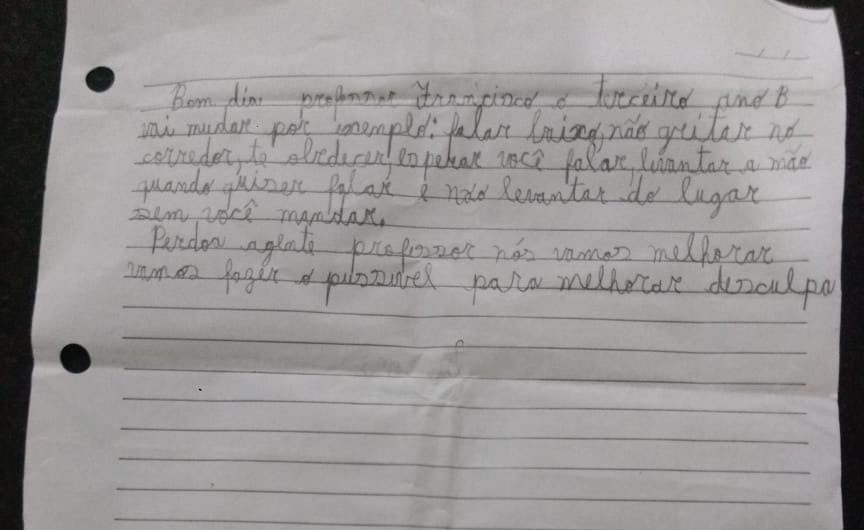 Bom dia professor Francisco o terceiro ano B
vai mudar por exemplo: falar baixo, não gritar no
corredor, te obedecer, esperar você falar, levantar a mão
quando quiser falar e não levantar do lugar
sem você mandar.
Perdoa agente professor nós vamos melhorar
vamos fazer o pussivel para melhorar desculpa